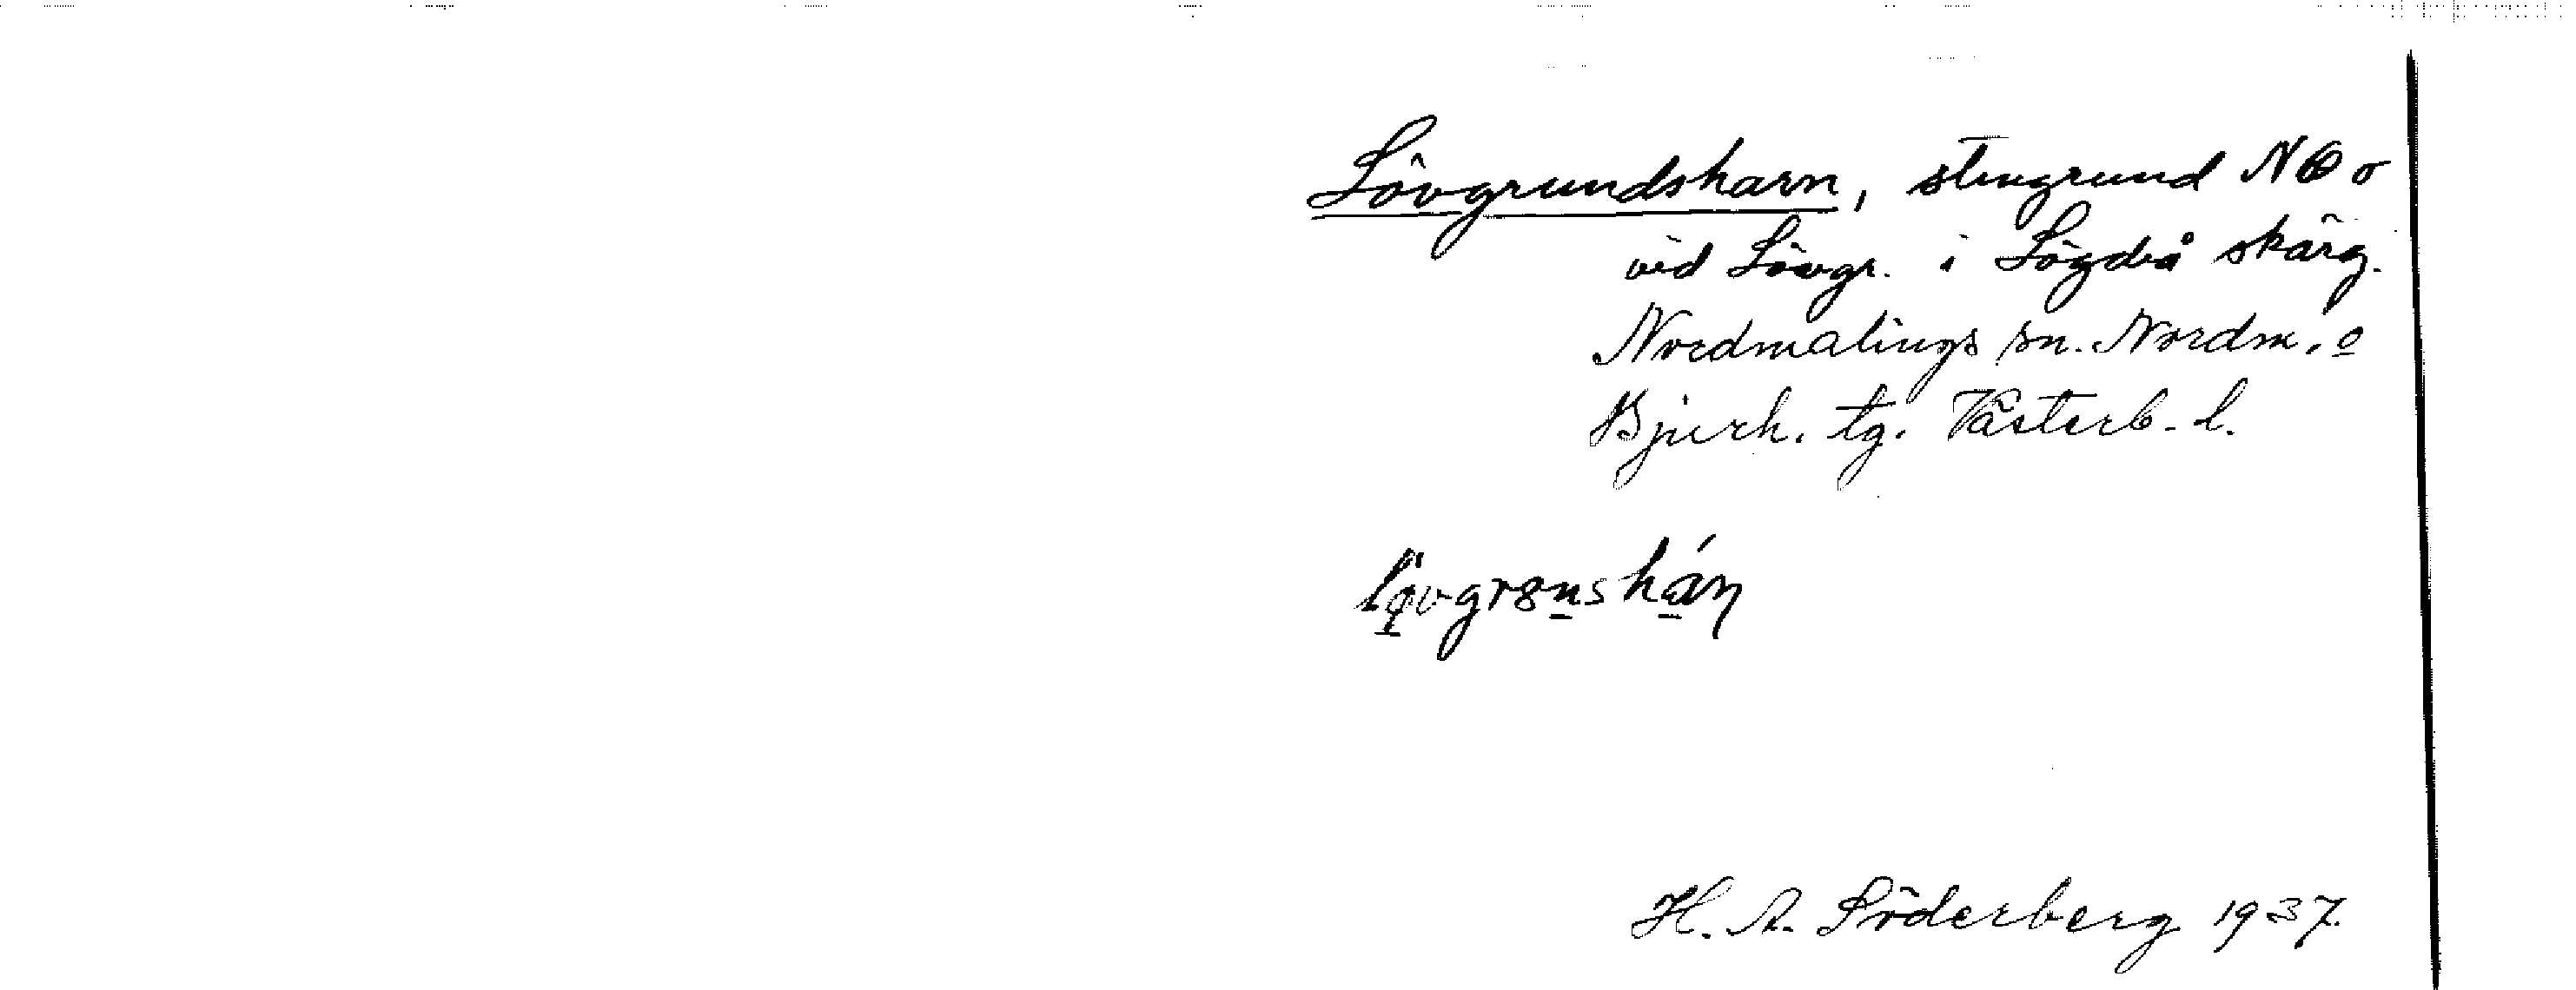 Lövgrundsharn, stengrund NO o
vid Lövgr. i Lögdeå skärg.
Nordmalings sn. Nordm. o
Bjurh. tg. Västerb. l.
H. A. Söderberg 1937.